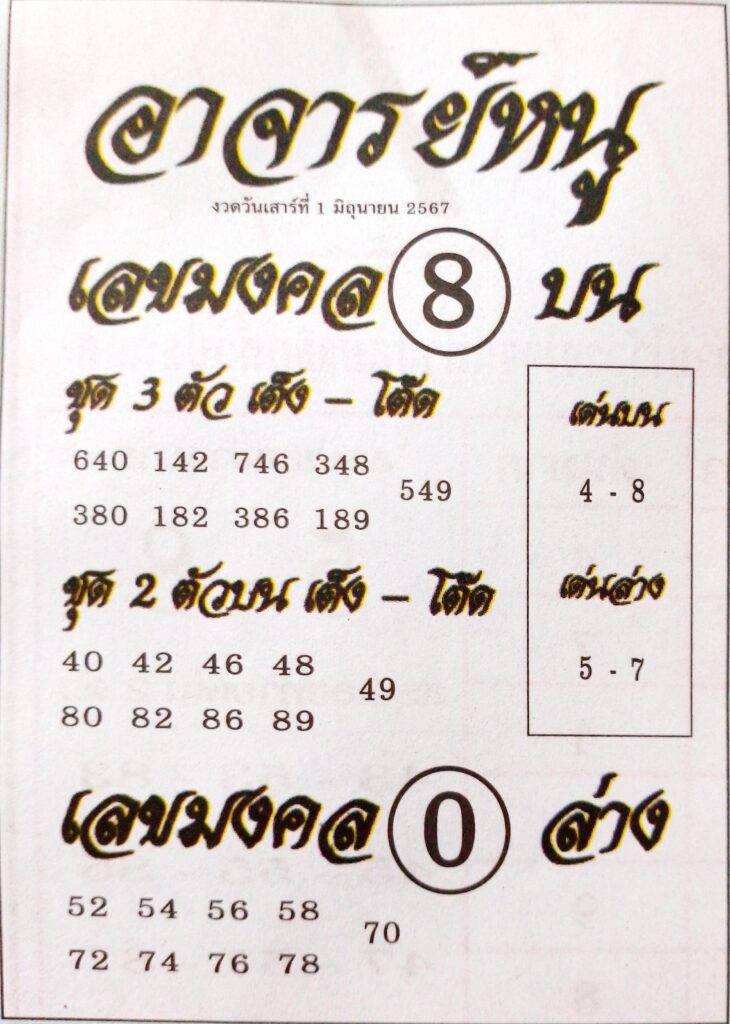 อาจารย์หนู
งวดวันเสาร์ที่ 1 มิถุนายน 2567
เลขมงคล 8 บน
ชุด 3 ตัว เต็ง – โต๊ด
640 142 746 348
549
380 182 386 189
เด่นบน
4 - 8
ชุด 2 ตัวบน เต็ง – โต๊ด
40 42 46 48
49
80 82 86 89
เด่นล่าง
5 - 7
เลขมงคล 0 ล่าง
52 54 56 58
70
72 74 76 78